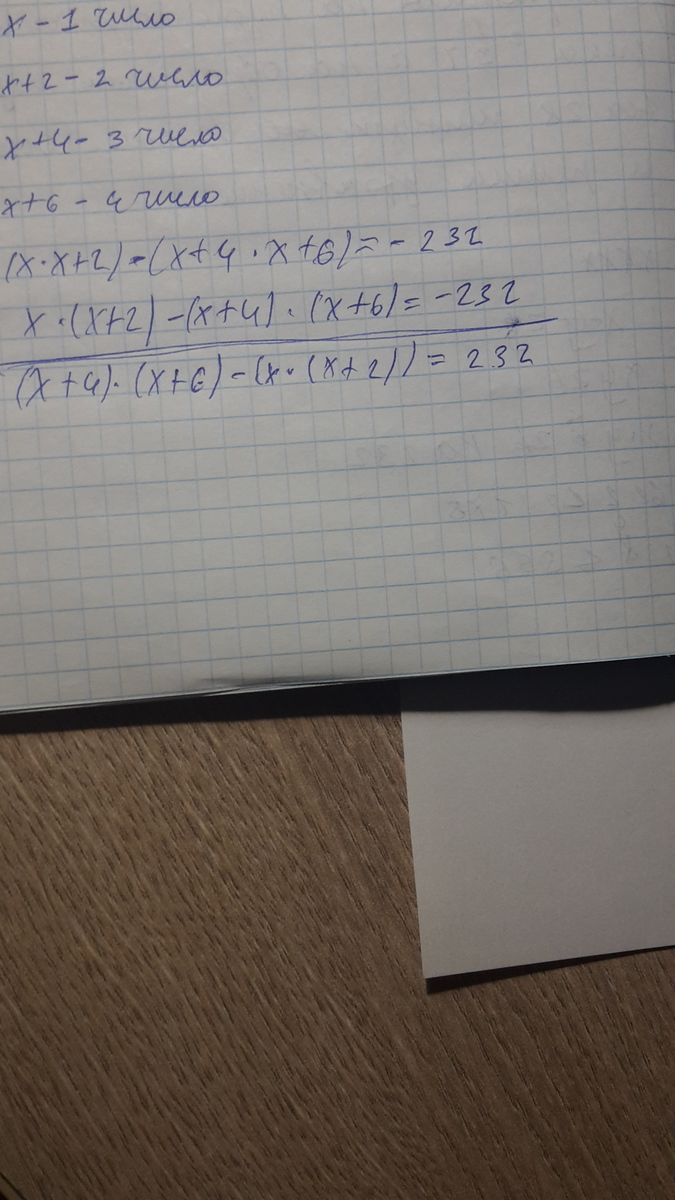 x - 1 число
x+2 - 2 число
x+4 - 3 число
x+6 - 4 число
(x·x+2)-(x+4·x+6)=-232
x·(x+2)-(x+4)·(x+6)=-232
(x+4)·(x+6)-(x·(x+2))=232